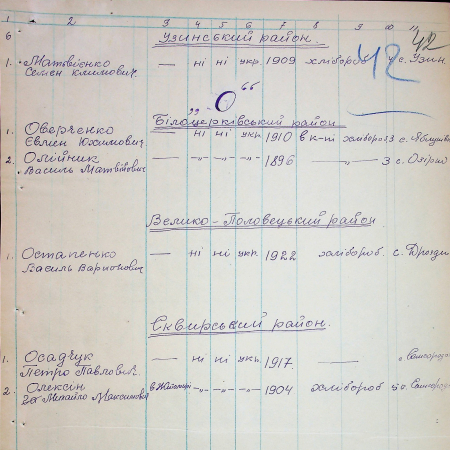 1 2 3 4 5 6 7 8 9 10 11
б 42
Узинський район.
1. Матвієнко — ні ні укр. 1909 хлібороб 42 с. Узин
Семен Климович
„О“
Білоцерківський район
1. Оверченко — ні ні укр. 1910 в к-пі хлібороб 3 с. Яблунівка
Євмен Юхимович
2. Олійник — -„- -„- -„- 1896 -„- 3 с. Озірна
Василь Матвійович
Велико-Половецький район
1. Остапенко — ні ні укр. 1922 хлібороб. с. Дрозди
Василь Варионович
Сквирський район.
1. Осадчук — ні ні укр. 1917. —
Петро Павлович.
2. Олексін -„- -„- -„- 1904 хлібороб 5
Михайло Максимович